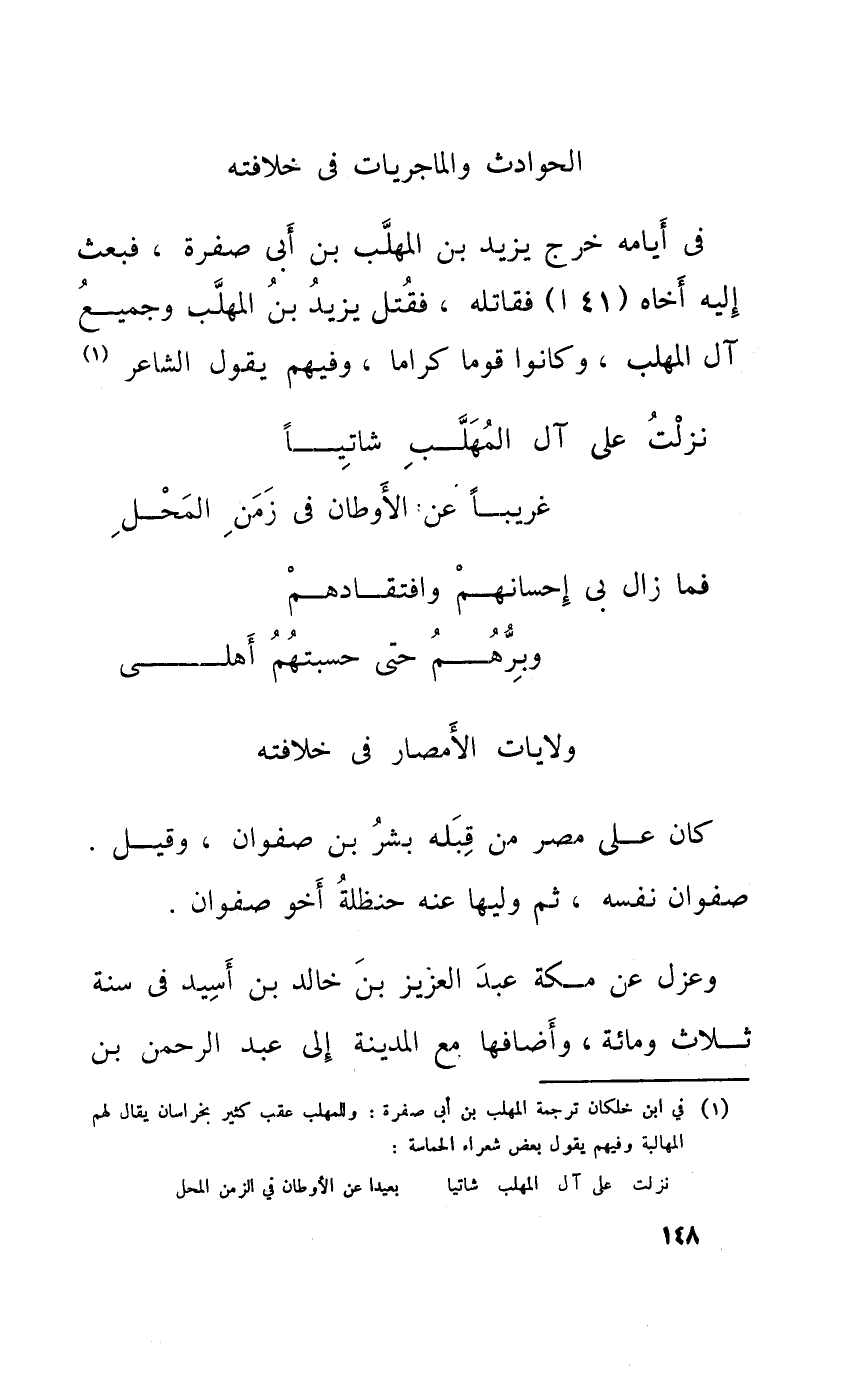 الحوادث والماجريات فى خلافته
فى أَيامه خرج يزيد بن المهلَّب بن أَبى صفرة ، فبعث
إليه أَخاه (٤١ ا) فقاتله ، فقُتل يزيدُ بنُ المهلَّب وجميـعُ
آل المهلب ، وكانوا قوما كراما ، وفيهم يقول الشاعر (١)
نزلْتُ على آل المُهَلَّـبِ شاتِيـاً
غريبـاً عن الأَوطان فى زَمَنِ المَحْـلِ
فما زال بى إِحسانهـمْ وافتقـادهـمْ
وبِرُّهُـمُ حتى حسبتهُمُ أَهلـى
ولايات الأَمصار فى خلافته
كان عـلى مصر من قِبَله بشرُ بن صفوان ، وقيـل .
صفوان نفسه ، ثم وليها عنه حنظلةُ أَخو صفوان .
وعزل عن مـكة عبدَ العزيز بنَ خالد بن أَسِيد فى سنة
ثـلاث ومائة ، وأَضافها مع المدينة إلى عبد الرحمن بن
(١) في ابن خلكان ترجمة المهلب بن أبى صفرة : وللمهلب عقب كثير بخراسان يقال لهم
المهالبة وفيهم يقول بعض شعراء الحماسة :
نزلت على آل المهلب شاتيا بعيدا عن الأوطان في الزمن المحل
١٤٨